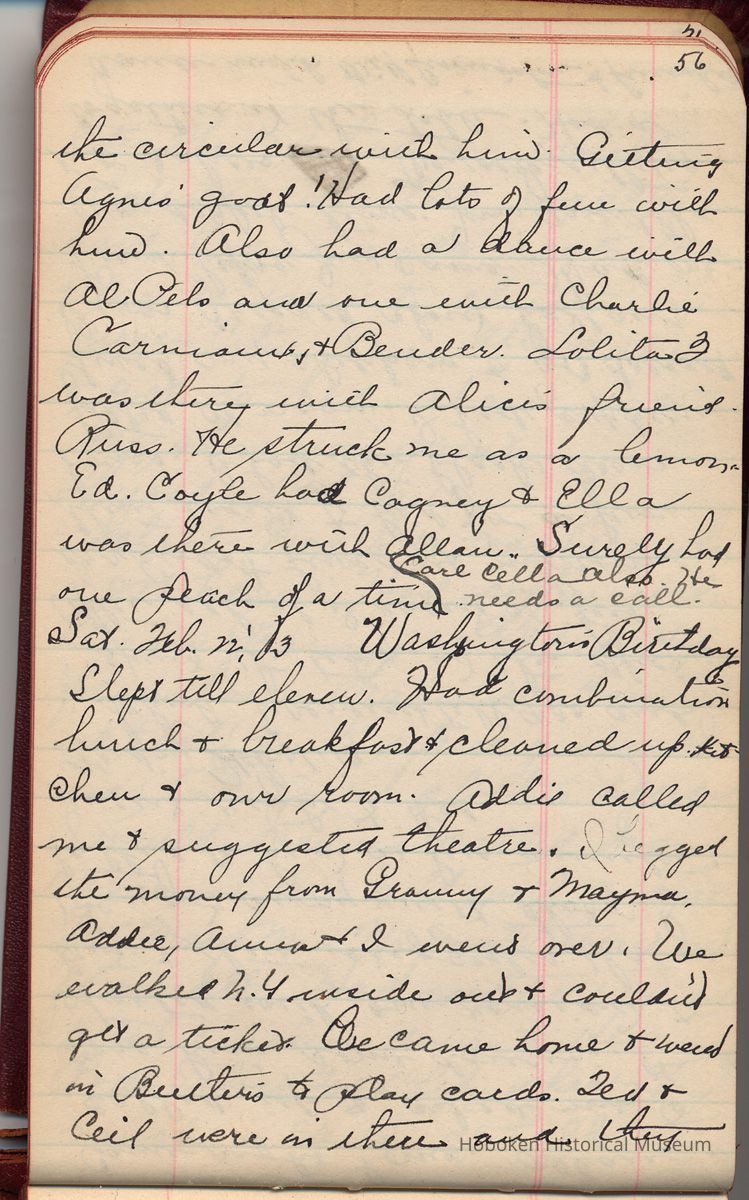 56
the circular with him. Getting
Agnes' goat! Had lots of fun with
him. Also had a dance with
Al Pels and one with Charlie
& Bender. Lolita
was there with Alice's friend
Russ. He struck me as a lemon.
Ed. Coyle had Cagney & Ella
was there with Allan. Surely had
Carl Cella also. He
one peach of a time needs a call.
Sat. Feb. 22, '13 Washington's Birthday
Slept till eleven. Had combination
lunch & breakfast & cleaned up kit-
chen & our room. Addie called
me & suggested theatre. I begged
the money from Granny & Mayma.
Addie, Anna & I went over. We
walked N.Y inside out & couldn't
get a ticket. We came home & went
in Butler's to play cards. Ted &
Ceil were in there and they
Hoboken Historical Museum